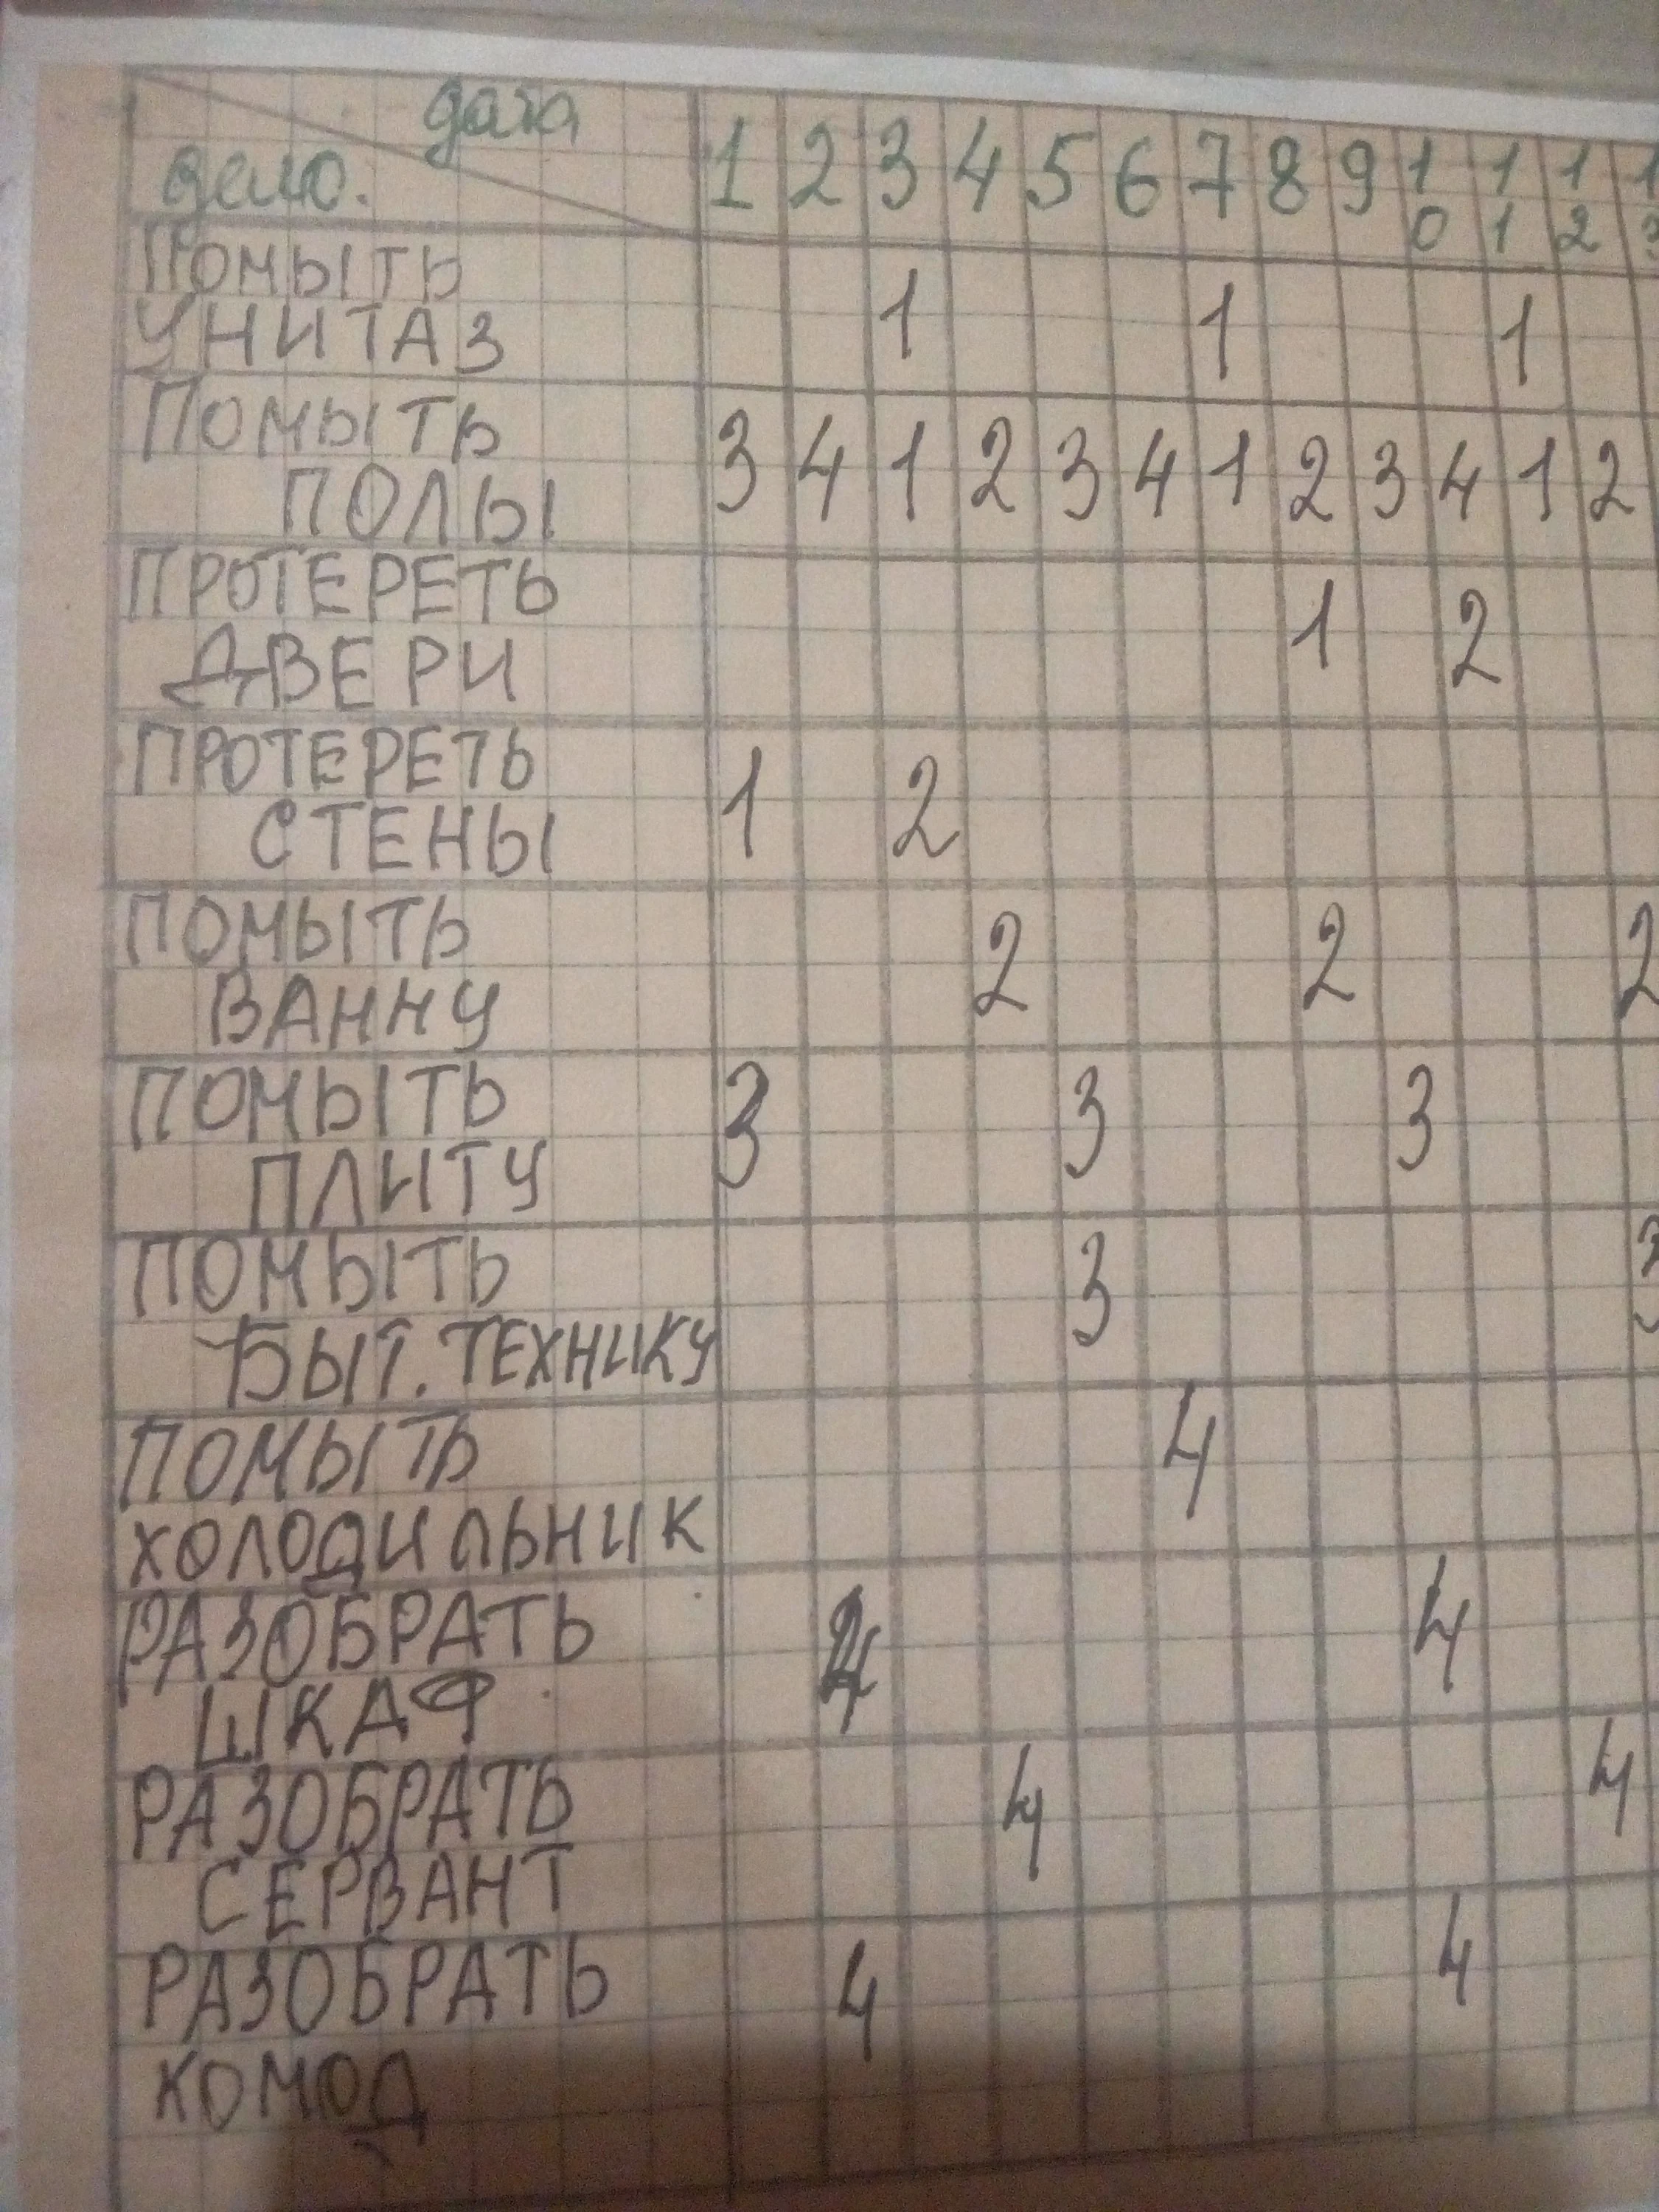 дата
дело. 1 2 3 4 5 6 7 8 9 10 11 12 13
ПОМЫТЬ
УНИТАЗ 1 1 1
ПОМЫТЬ
ПОЛЫ 3 4 1 2 3 4 1 2 3 4 1 2
ПРОТЕРЕТЬ
ДВЕРИ 1 2
ПРОТЕРЕТЬ
СТЕНЫ 1 2
ПОМЫТЬ
ВАННУ 2 2 2
ПОМЫТЬ
ПЛИТУ 3 3 3
ПОМЫТЬ
БЫТ. ТЕХНИКУ 3 3
ПОМЫТЬ
ХОЛОДИЛЬНИК 4
РАЗОБРАТЬ
ШКАФ 4 4
РАЗОБРАТЬ
СЕРВАНТ 4 4
РАЗОБРАТЬ
КОМОД 4 4